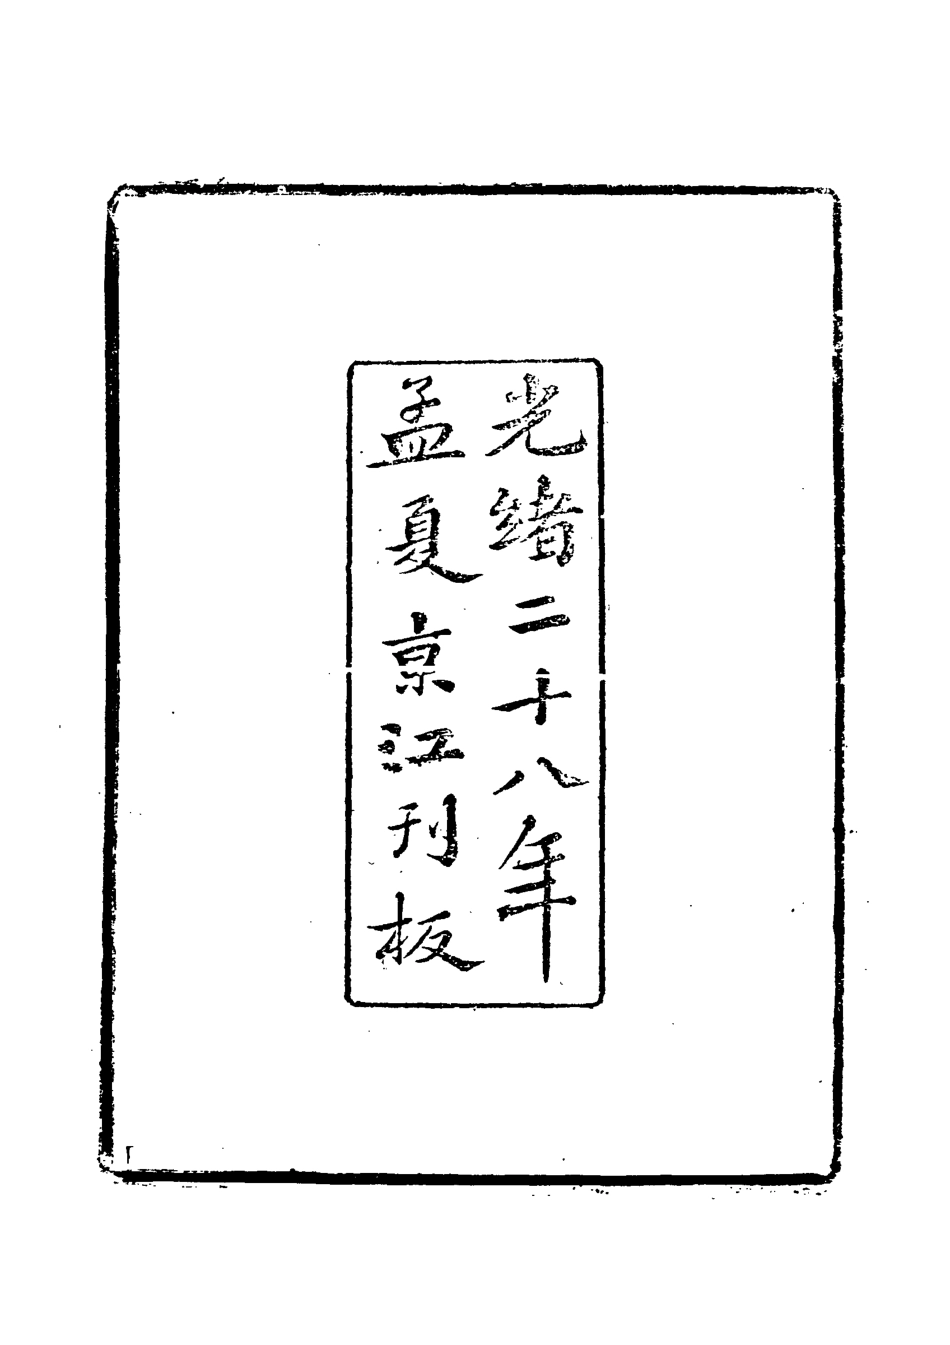 光緒二十八年
孟夏京江刊板